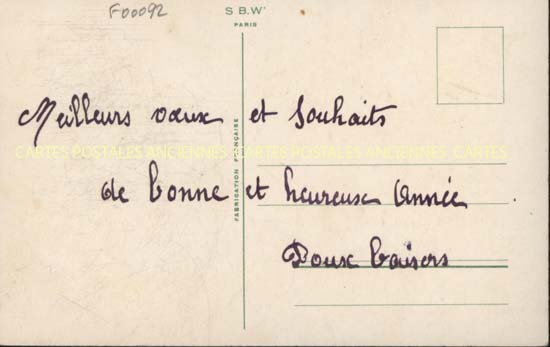 F00092
S B.W'
PARIS
Meilleurs vœux et Souhaits
CARTES POSTALES ANCIENNES CARTES POSTALES ANCIENNES
de bonne et heureuse Année
Doux baisers
FABRICATION FRANÇAISE